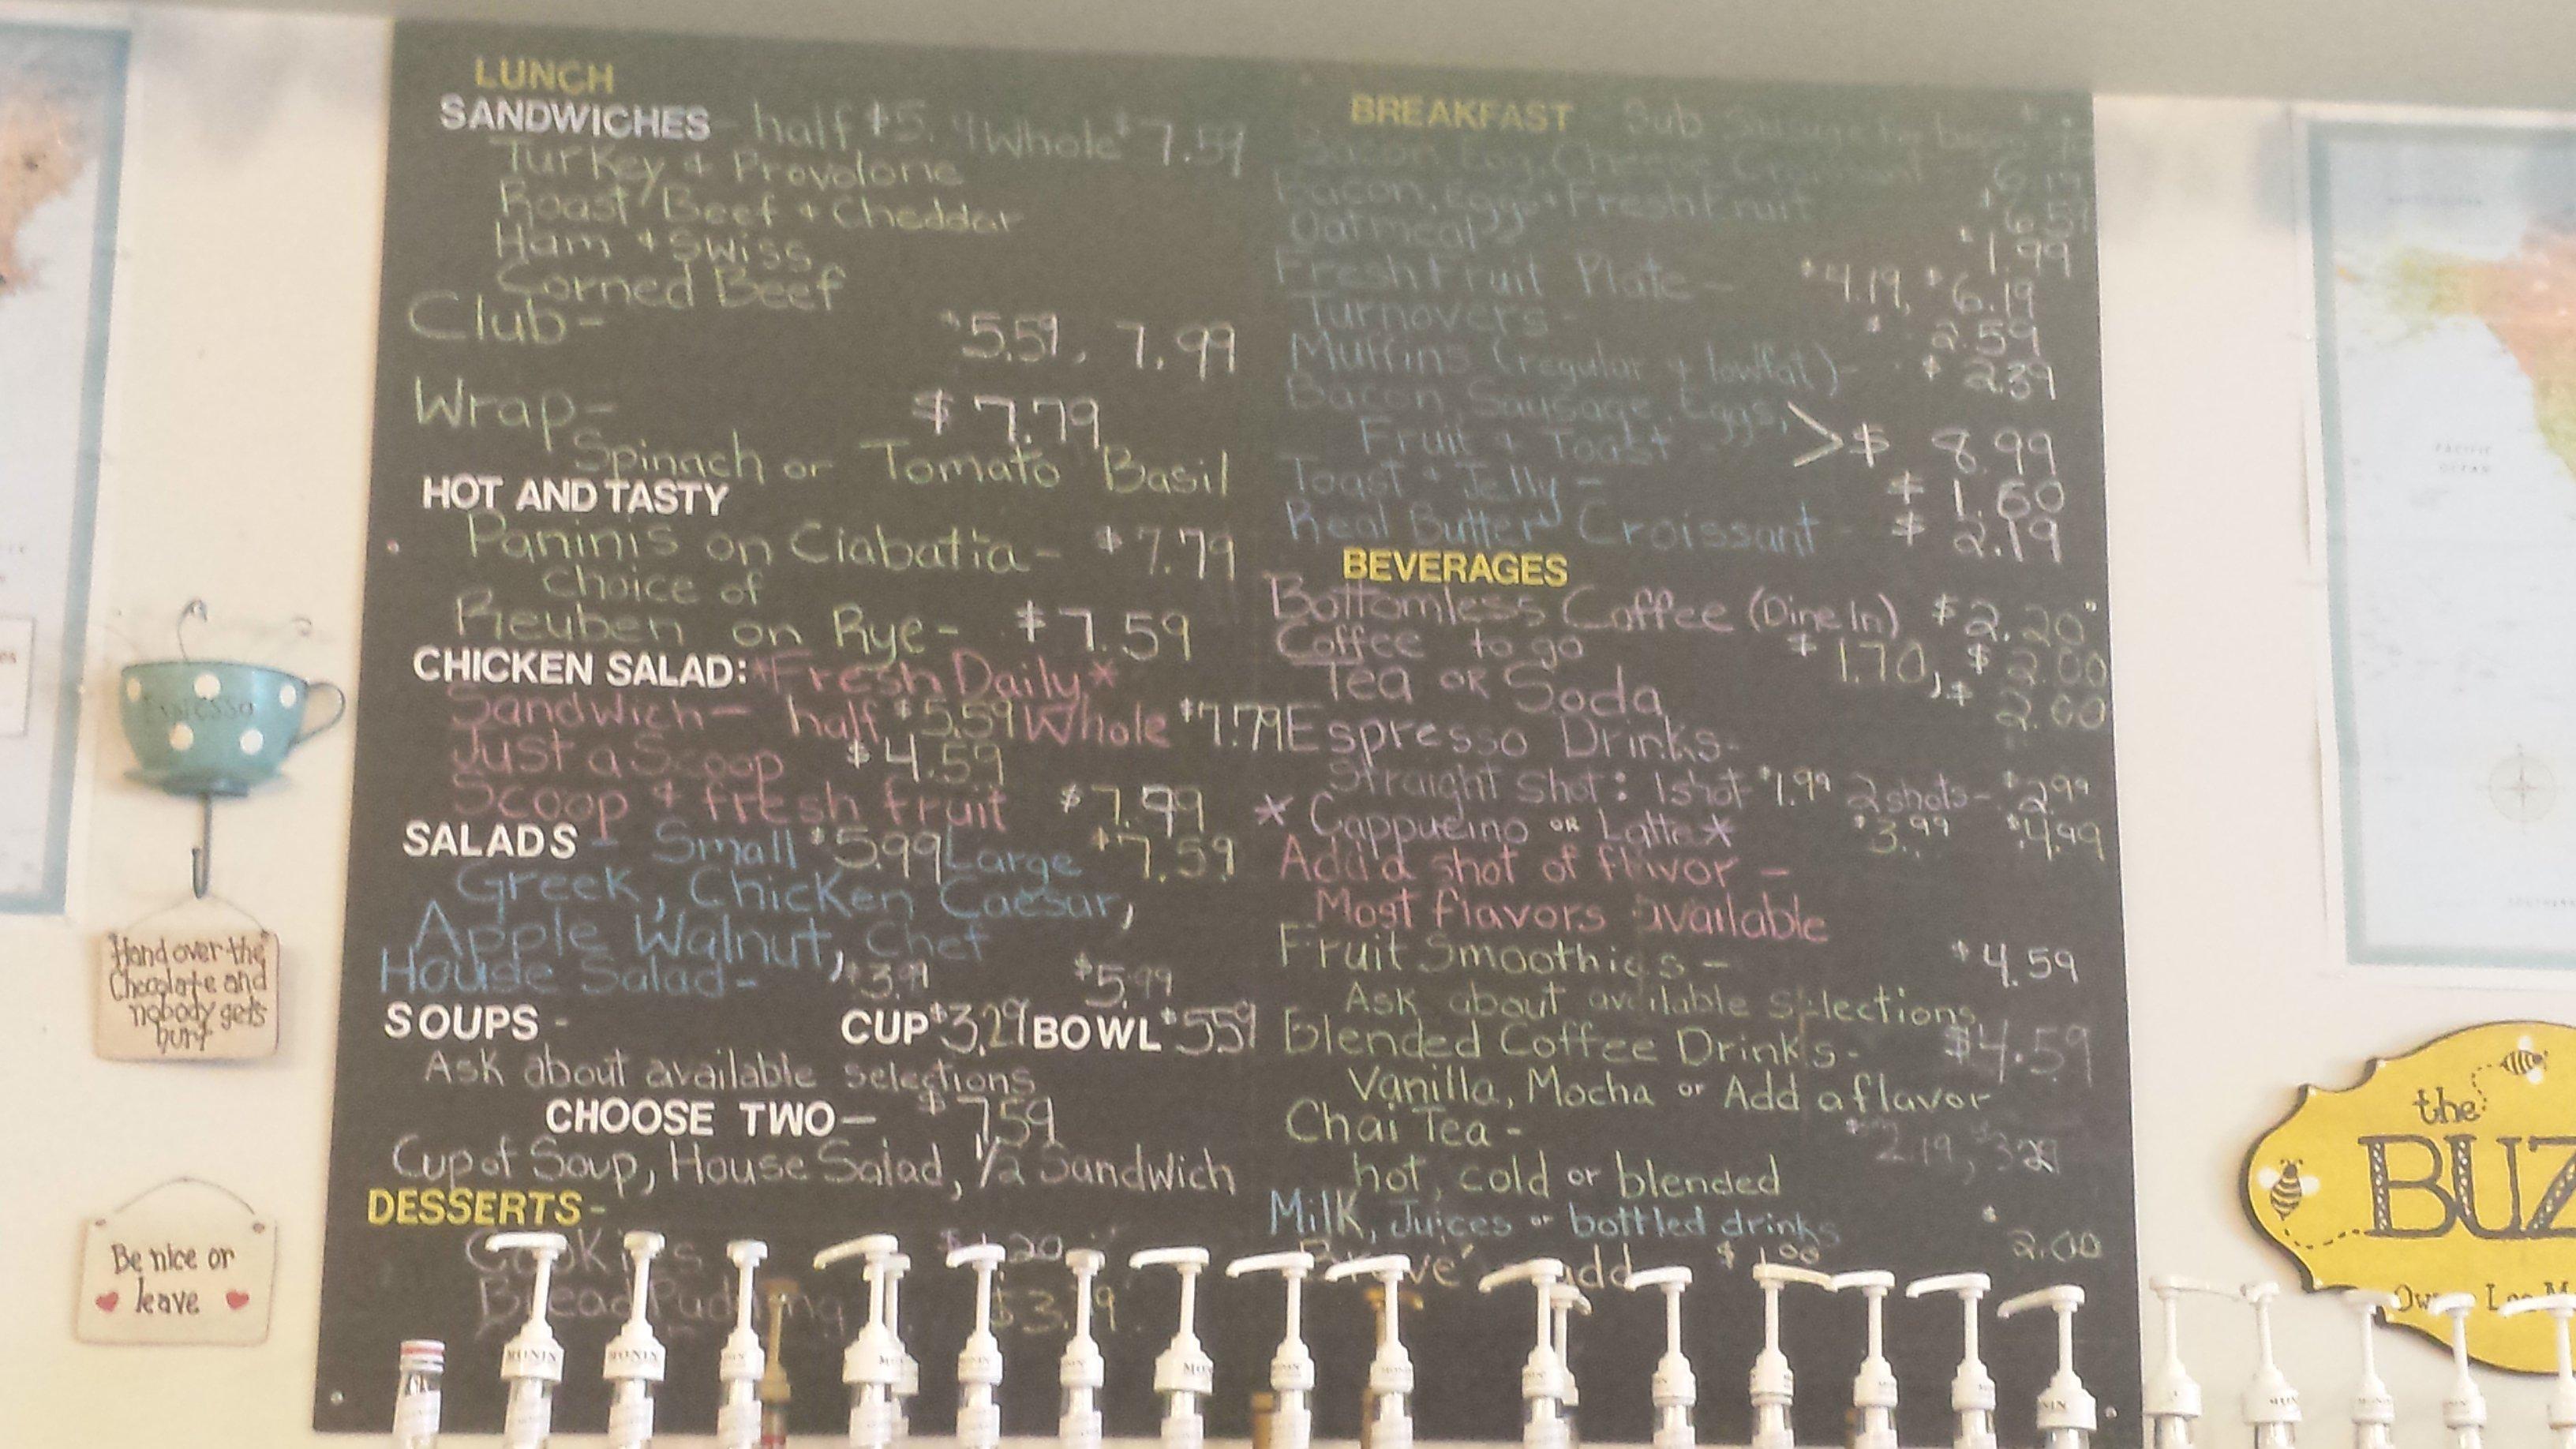 LUNCH
SANDWICHES - half $5. Whole $7.59
Turkey & Provolone
Roast Beef & Cheddar
Ham & Swiss
Corned Beef
Club - $5.59, 7.99
Wrap - $7.79
Spinach or Tomato Basil
HOT AND TASTY
Paninis on Ciabatta - $7.79
choice of
Reuben on Rye - $7.59
CHICKEN SALAD: *Fresh Daily*
Sandwich - half $5.59 Whole $7.79
Just a Scoop $4.59
Scoop & fresh fruit $7.99
SALADS - Small $5.99 Large $7.59
Greek, Chicken Caesar,
Apple Walnut, Chef
House Salad - $3.99 $5.99
SOUPS - CUP $3.29 BOWL $5.59
Ask about available selections
CHOOSE TWO - $7.59
Cup of Soup, House Salad, 1/2 Sandwich
DESSERTS -
Cookies
Bread Pudding
BREAKFAST - Sub Sausage for bacon
Bacon, Egg, Cheese Croissant 6.19
Bacon, Eggs & Fresh Fruit $6.59
Oatmeal $1.99
Fresh Fruit Plate - $4.19, $6.19
Turnovers - $2.59
Muffins (regular & lowfat) - $2.39
Bacon, Sausage, Eggs,
Fruit & Toast - > $8.99
Toast & Jelly - $1.60
Real Butter Croissant - $2.19
BEVERAGES
Bottomless Coffee (Dine In) $2.20
Coffee to go $1.70, $2.00
Tea OR Soda $2.00
Espresso Drinks -
Straight Shot: 1 shot $1.99 2 shots - $2.99
* Cappucino OR Latte * $3.99 $4.99
Add a shot of flavor -
Most flavors available
Fruit Smoothies - $4.59
Ask about available selections
Blended Coffee Drinks - $4.59
Vanilla, Mocha or Add a flavor
Chai Tea - $2.19, $3.29
hot, cold or blended
Milk, Juices or bottled drinks $2.00
add $1.00
Hand over the
Chocolate and
nobody gets
hurt
Be nice or
leave
PACIFIC
OCEAN
the
BUZ
MONIN
MONIN